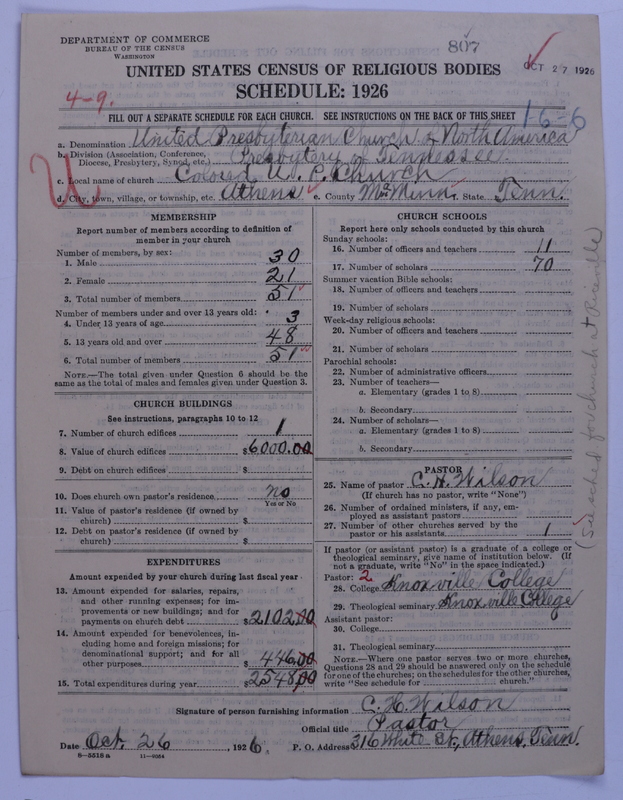 DEPARTMENT OF COMMERCE
BUREAU OF THE CENSUS
WASHINGTON
807
OCT 27 1926
UNITED STATES CENSUS OF RELIGIOUS BODIES
SCHEDULE: 1926
4-9.
16=6
FILL OUT A SEPARATE SCHEDULE FOR EACH CHURCH. SEE INSTRUCTIONS ON THE BACK OF THIS SHEET
a. Denomination United Presbyterian Church of North America
b. Division (Association, Conference, Diocese, Presbytery, Synod, etc.) Presbytery of Tennessee.
c. Local name of church Colored U. P. Church
d. City, town, village, or township, etc. Athens e. County McMinn f. State Tenn.
MEMBERSHIP
Report number of members according to definition of
member in your church
Number of members, by sex:
1. Male 30
2. Female 21
3. Total number of members 51
Number of members under and over 13 years old:
4. Under 13 years of age 3
5. 13 years old and over 48
6. Total number of members 51
NOTE.—The total given under Question 6 should be
same as the total of males and females given under Question 3.
CHURCH BUILDINGS
See instructions, paragraphs 10 to 12
7. Number of church edifices 1
8. Value of church edifices $6000.00
9. Debt on church edifices $
10. Does church own pastor's residence no
Yes or No
11. Value of pastor's residence (if owned by
church) $
12. Debt on pastor's residence (if owned by
church) $
EXPENDITURES
Amount expended by your church during last fiscal year
13. Amount expended for salaries, repairs,
and other running expenses; for im-
provements or new buildings; and for
payments on church debt $2102.00
14. Amount expended for benevolences, in-
cluding home and foreign missions; for
denominational support; and for all
other purposes $446.00
15. Total expenditures during year $2548.00
CHURCH SCHOOLS
Report here only schools conducted by this church
Sunday schools:
16. Number of officers and teachers 11
17. Number of scholars 70
Summer vacation Bible schools:
18. Number of officers and teachers
19. Number of scholars
Week-day religious schools:
20. Number of officers and teachers
21. Number of scholars
Parochial schools:
22. Number of administrative officers
23. Number of teachers—
a. Elementary (grades 1 to 8)
b. Secondary
24. Number of scholars—
a. Elementary (grades 1 to 8)
b. Secondary
PASTOR
25. Name of pastor C. H. Wilson
(If church has no pastor, write "None")
26. Number of ordained ministers, if any, em-
ployed as assistant pastors
27. Number of other churches served by the
pastor or his assistants 1
If pastor (or assistant pastor) is a graduate of a college or
theological seminary, give name of institution below. (If
not a graduate, write "No" in the space indicated.)
Pastor: 2
28. College Knoxville College
29. Theological seminary Knoxville College
Assistant pastor:
30. College
31. Theological seminary
NOTE.—Where one pastor serves two or more churches,
Questions 28 and 29 should be answered only on the schedule
for one of the churches; on the schedules for the other churches,
write "See schedule for church."
(See sched. for church at Riceville)
Signature of person furnishing information C. H. Wilson
Official title Pastor
Date Oct. 26, 1926. P. O. Address 316 White St., Athens, Tenn.
8—5518 a 11—9054